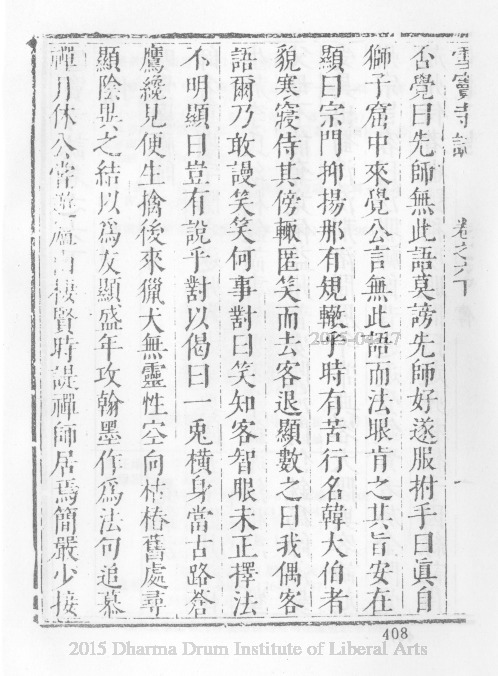 雪竇寺誌　卷之六下
否覺曰先師無此語莫謗先師好遂服拊手曰眞自
獅子窟中來覺公言無此語而法眼肯之其旨安在
顯曰宗門抑揚那有規轍乎時有苦行名韓大伯者
貌寒寢侍其傍輒匿笑而去客退顯數之曰我偶客
語爾乃敢謾笑笑何事對曰笑知客智眼未正擇法
不明顯曰豈有說乎對以偈曰一兎橫身當古路蒼
鷹纔見便生擒後來獵犬無靈性空向枯樁舊處尋
顯陰異之結以爲友顯盛年攻翰墨作爲法句追慕
禪月休公嘗遊廬山棲賢時諟禪師居焉簡嚴少接
408
2015 Dharma Drum Institute of Liberal Arts